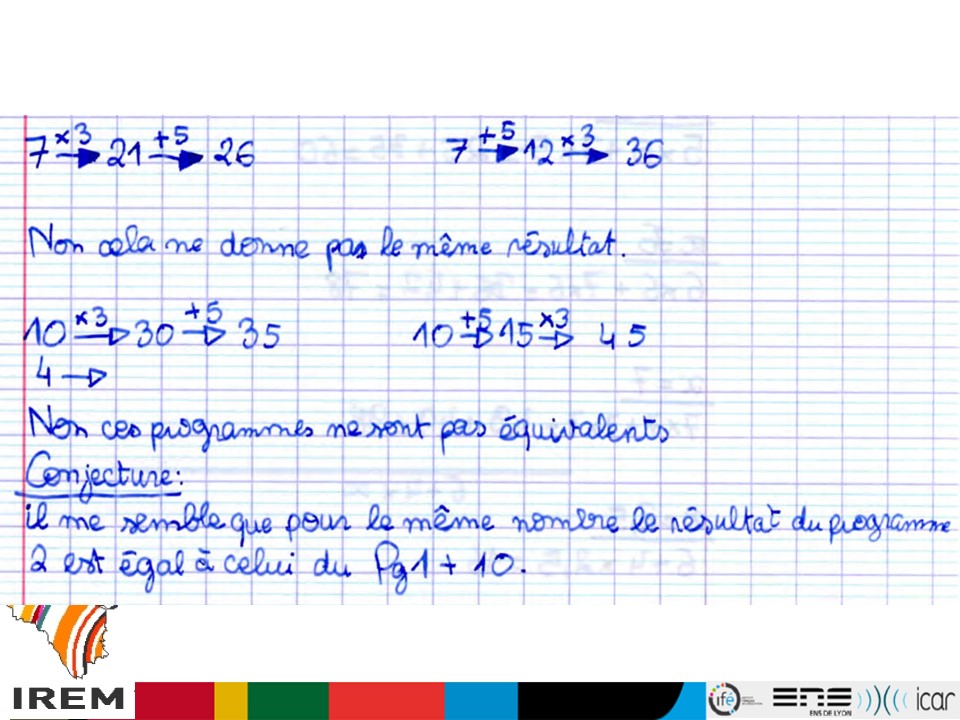 7 ×3 → 21 +5 → 26    7 +5 → 12 ×3 → 36
Non cela ne donne pas le même résultat.
10 ×3 → 30 +5 → 35    10 +5 → 15 ×3 → 45
4 →
Non ces programmes ne sont pas équivalents
Conjecture:
il me semble que pour le même nombre le résultat du programme
2 est égal à celui du Pg1 + 10.
IREM
ifé ENS DE LYON icar